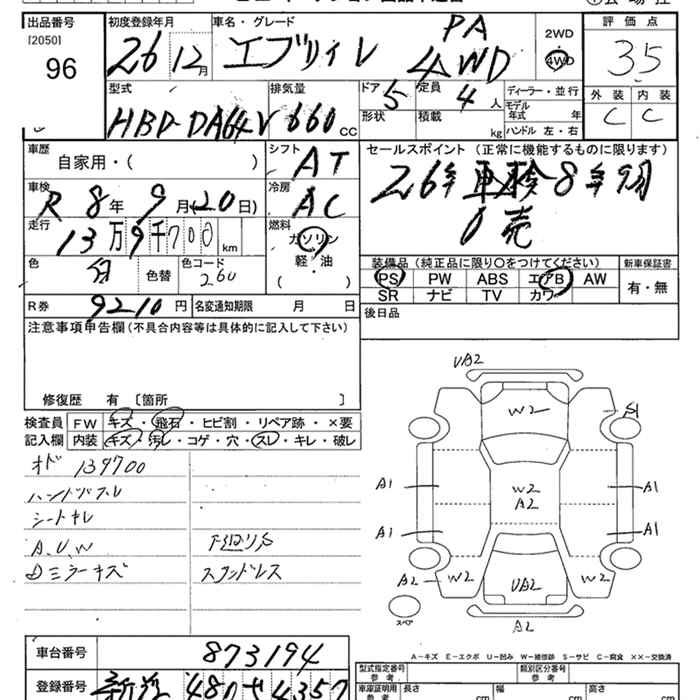 出品番号 初度登録年月 車名・グレード 2WD 評価点
[2050] 26 12月 エブリイ PA 4WD 4WD 35
96
型式 排気量 ドア 5 定員 4人 ディーラー・並行 外装 内装
HBD-DA64V 660cc 形状 積載 kg モデル年式 年 C C
ハンドル 左・右
車歴 シフト セールスポイント (正常に機能するものに限ります)
自家用・( ) AT 26年 車検8年9月
車検 冷房
R8年9月20日) AC
走行 燃料
13万9千700km ガソリン
軽・油
( )
色 色替 色コード 260
装備品(純正品に限り〇をつけてください) 新車保証書
PS PW ABS エアB AW 有・無
SR ナビ TV カワ
R券 9210円 名変通知期限 月 日
後日品
注意事項申告欄(不具合内容等は具体的に記入して下さい)
修復歴 有 〔箇所 〕
検査員 FW キズ・飛石・ヒビ割・リペア跡・×要
記入欄 内装 キズ・汚レ・コゲ・穴・スレ・キレ・破レ
オド 139700
シートキレ
A.U.W
ミラーキズ
スタッドレス
UA2
W2 S1
A1 W2 A2 A1
A1 A1
A2 W2 UA2 W2
スペア
A2
A-キズ E-エクボ U-凹み W-補修跡 S-サビ C-腐食 XX-交換済
車台番号 873194
型式指定番号 参考 類別区分番号 参考
登録番号 480 4357
車庫証明用 参考 長さ cm 幅 cm 高さ cm